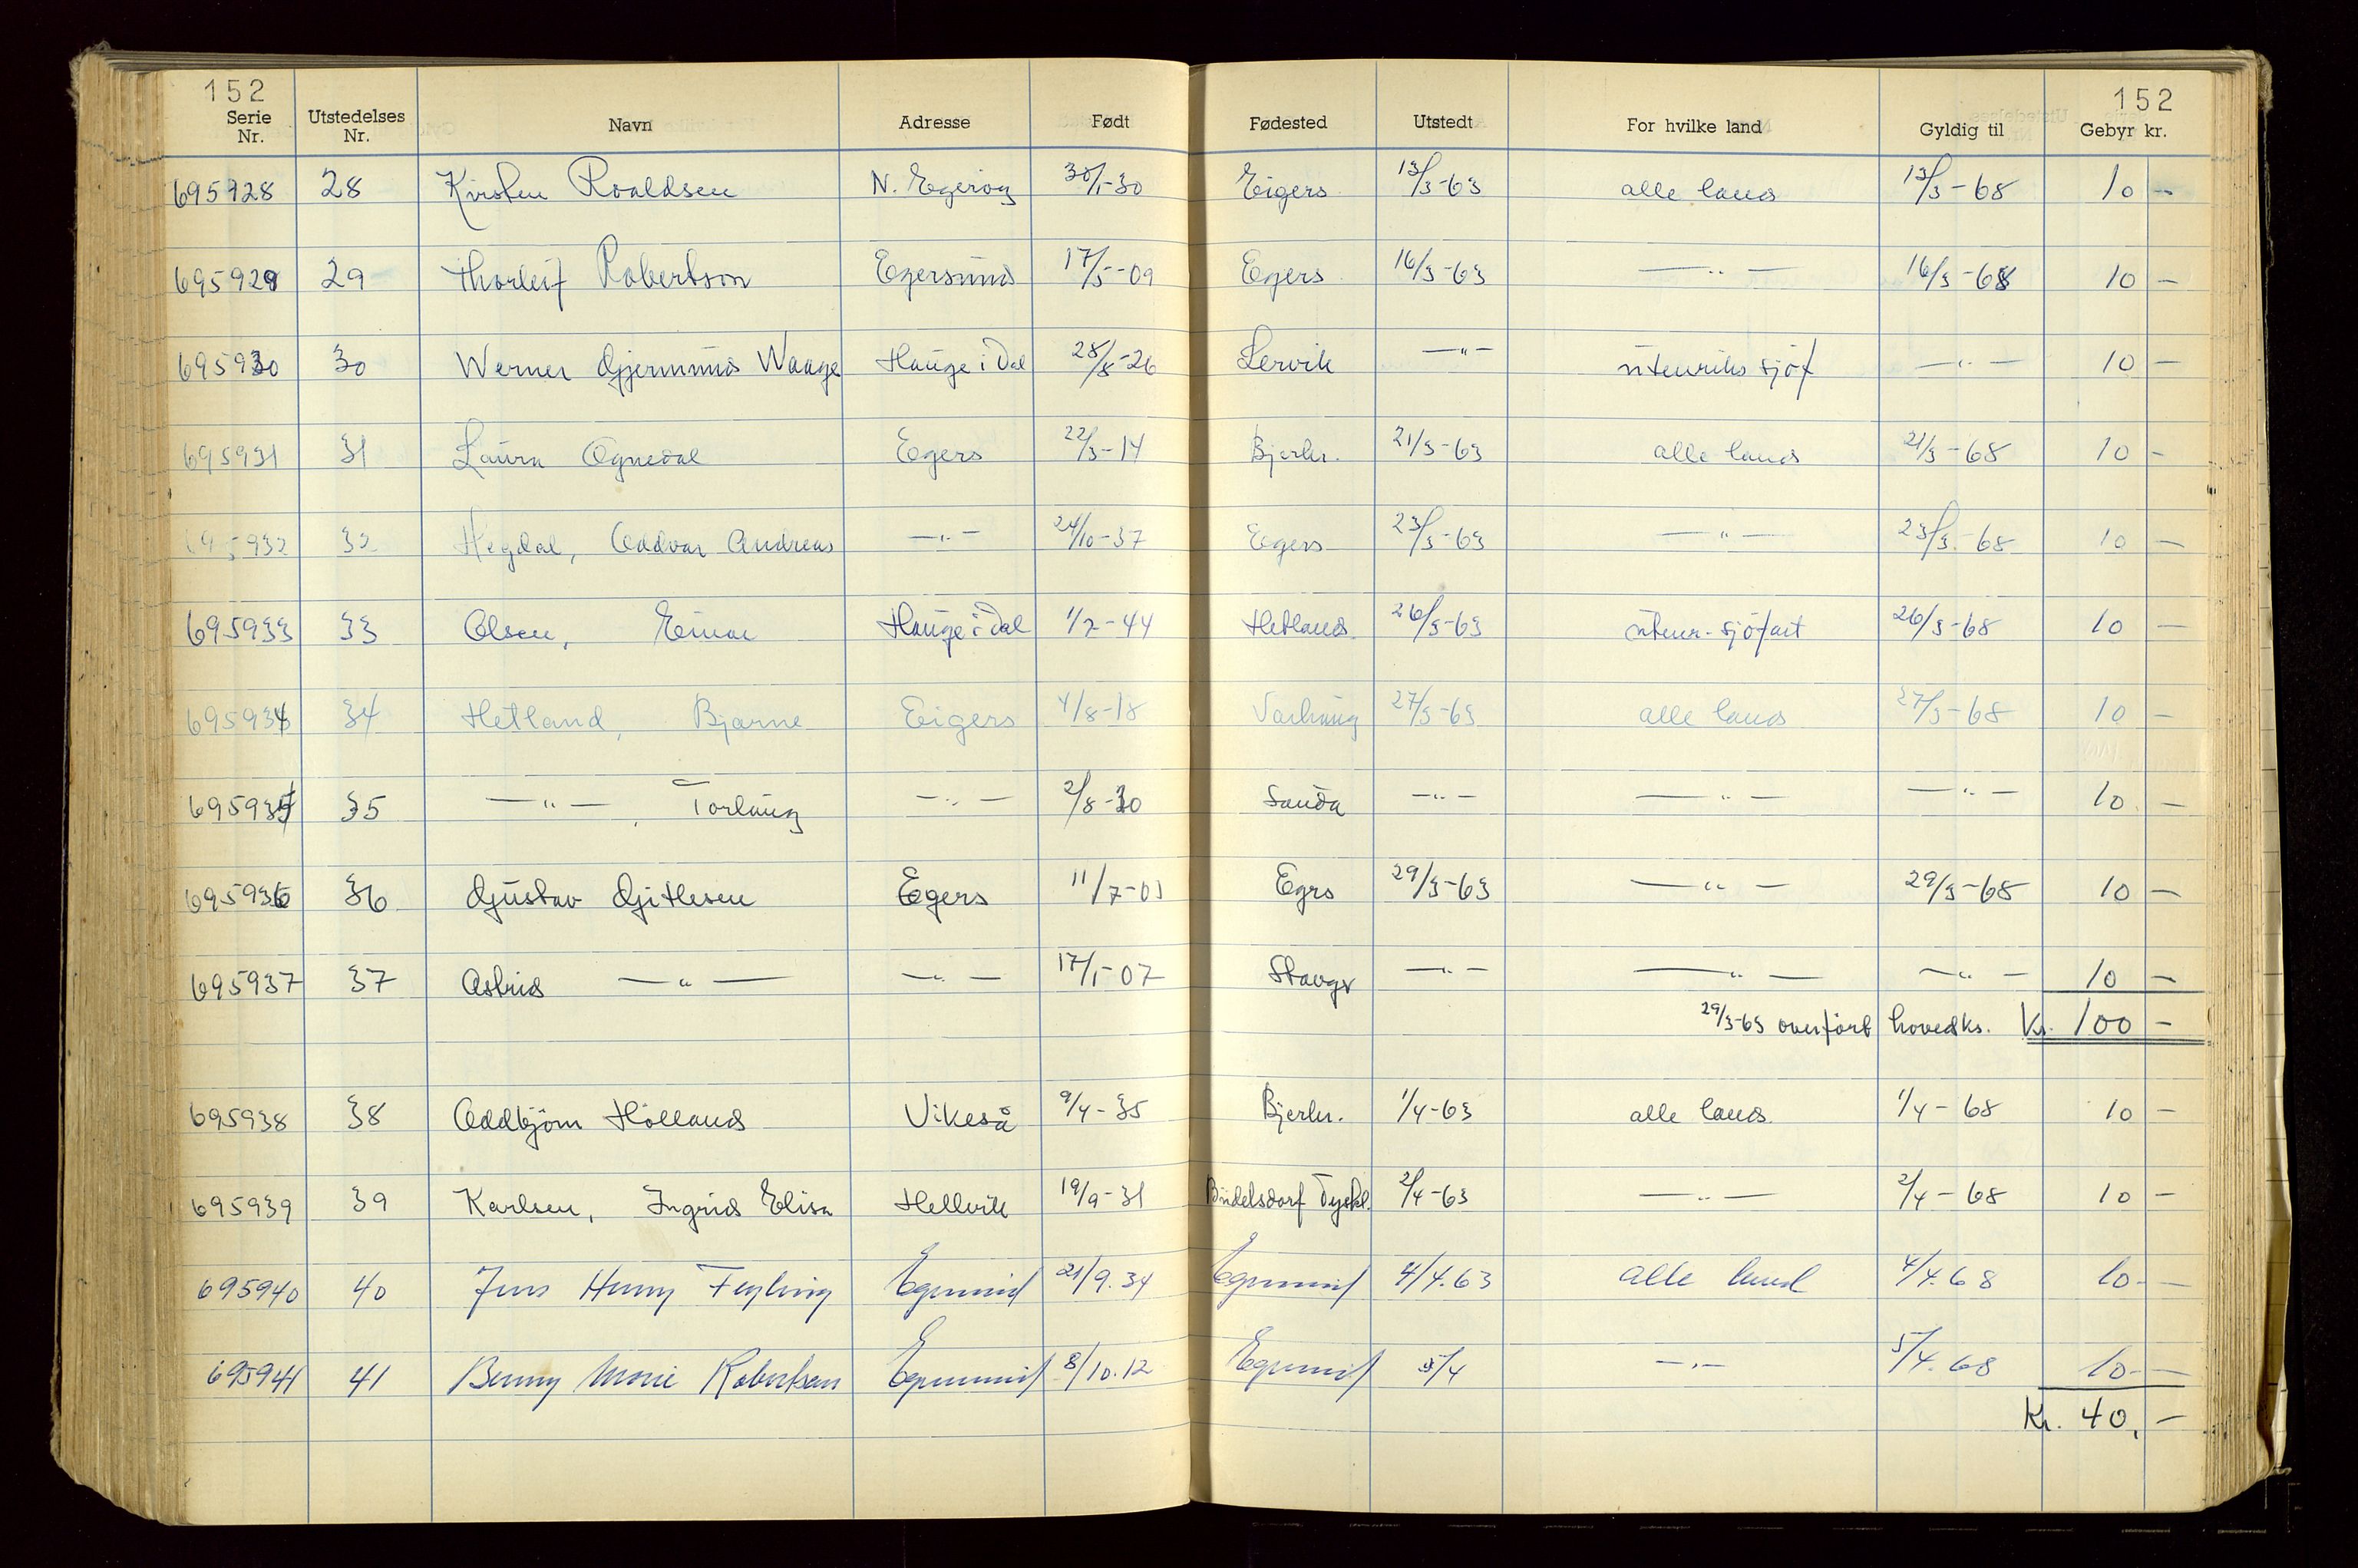 152 152
Serie Nr. Utstedelses Nr. Navn Adresse Født Fødested Utstedt For hvilke land Gyldig til Gebyr kr.
695928 28 Kirsten Roaldsen N. Egerøy 30/1-30 Eigers 13/3-63 alle land 13/3-68 10 -
695929 29 Thorleif Robertson Egersund 17/5-09 Egers 16/3-63 —"— 16/3-68 10 -
695930 30 Werner Gjermund Waage Hauge i Dal 28/8-26 Lervik —"— utenriks sjøf —"— 10 -
695931 31 Laura Ognedal Egers 22/3-14 Bjerkr. 21/3-63 alle land 21/3-68 10 -
695932 32 Hegdal, Oddvar Andreas —"— 24/10-37 Egers 23/3-63 —"— 23/3-68 10 -
695933 33 Olsen, Einar Hauge i Dal 1/7-44 Hetland 26/3-63 utenr. sjøfart 26/3-68 10 -
695934 34 Hetland, Bjarne Eigers 4/8-18 Varhaug 27/3-63 alle land 27/3-68 10 -
695935 35 —"—, Torlaug —"— 2/8-30 Sauda —"— —"— —"— 10 -
695936 36 Gustav Gitlesen Egers 11/7-03 Egrs 29/3-63 —"— 29/3-68 10 -
695937 37 Astrid —"— —"— 17/1-07 Stavgr —"— —"— —"— 10 -
29/3-63 overført hovedks. Kr. 100 -
695938 38 Oddbjørn Holland Vikeså 9/4-35 Bjerkr. 1/4-63 alle land 1/4-68 10 -
695939 39 Karlsen, Ingrid Elisa Hellvik 19/9-31 Büdelsdorf Tyskl. 2/4-63 —"— 2/4-68 10 -
695940 40 Jens Henry Feyling Egersund 21/9.34 Egersund 4/4.63 alle land 4/4.68 10 -
695941 41 Benny Marie Robertsen Egersund 8/10.12 Egersund 5/4 —"— 5/4.68 10 -
Kr. 40, -